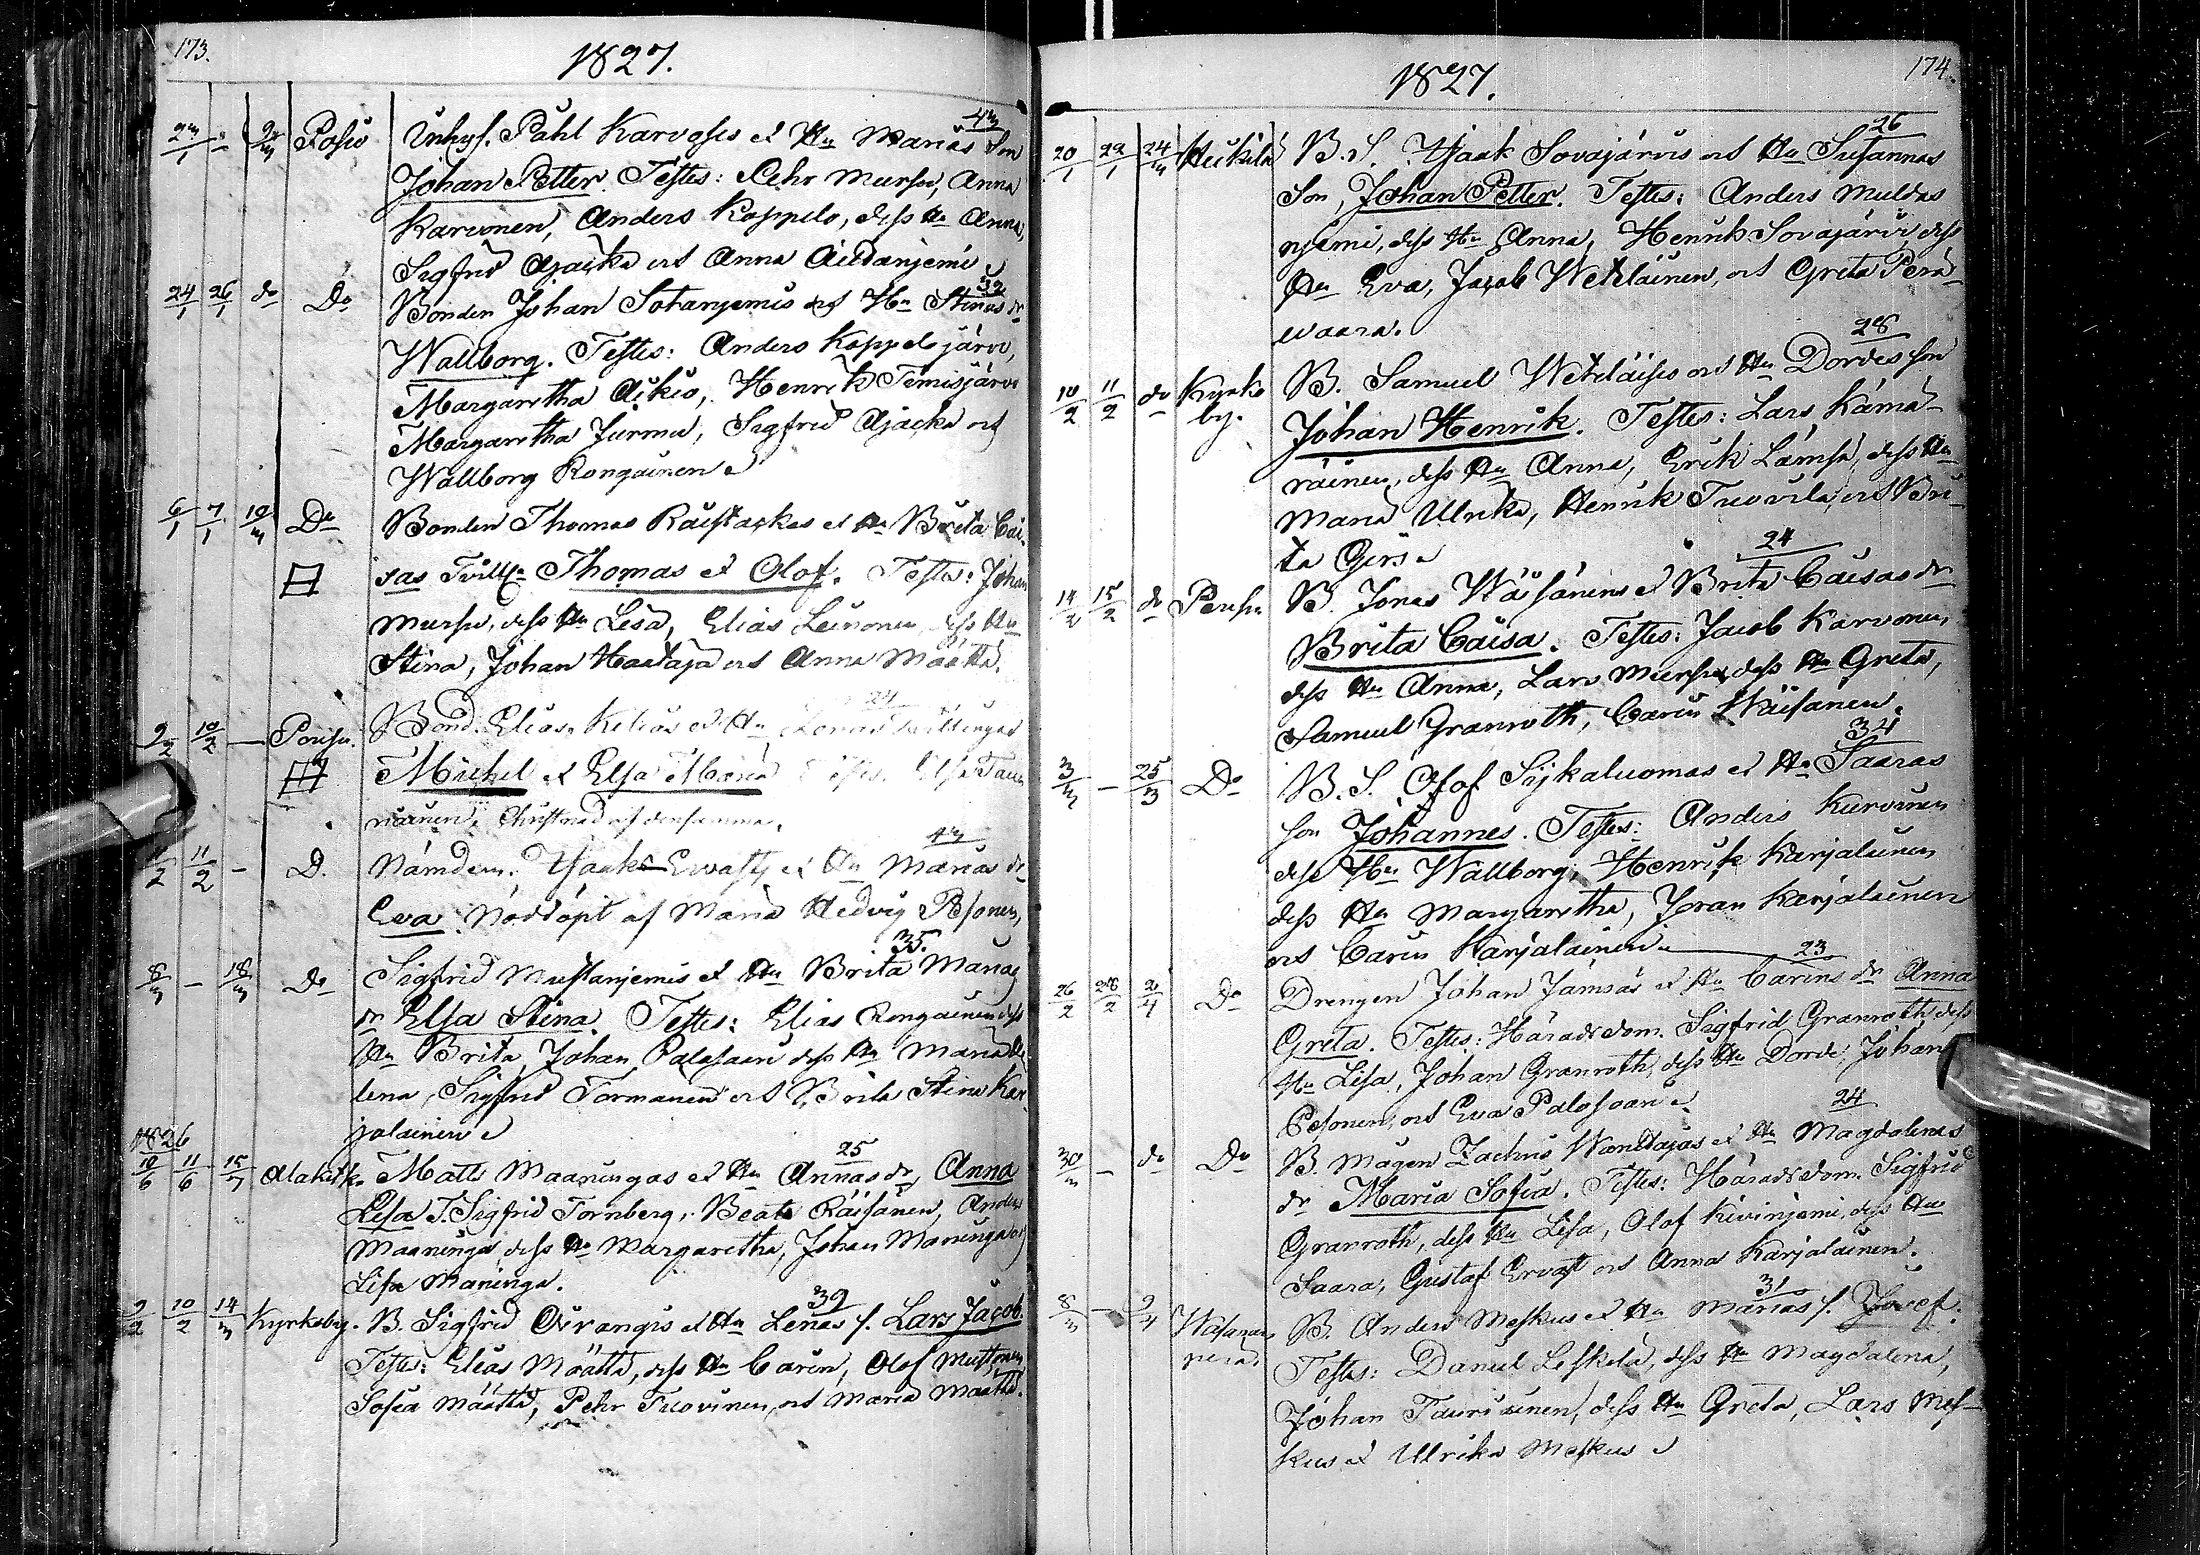 173.
1827.
43
23/1 - 2/3 Posio Inhys. Påhl Karvoses et Hu Marias Son
Johan Petter. Testes: Pehr Mursu, Anna
Karvonen, Anders Koppelo, dess Hu Anna,
Sigfrid Ajacka och Anna
32
24/1 26/1 do Do Bonden Johan Sotanjemis och Hu Stinas dr
Wallborg. Testes: Anders Koppelojärvi,
Margaretha Aikio, Henrik Temisjärvi
Margaretha Jurmu, Sigfrid Ajacka och
Wallborg Rongainen
6/1 7/1 10/3 Do Bonden Thomas et Hu Brita Cai-
sas Tvill. Thomas et Olof. Testes: Johan
Mursu, dess Hu Lisa, Elias Leinonen, dess Hu
Stina, Johan Haataja och Anna Määttä.
24
9/2 10/2 - Bond. Elias et Hu Tvillingar
Michel et Elsa Maria Testes. Elsa Tau-
riainen. Christnad af densamma.
43
11/2 11/2 - D. Nämdem. Isaak Ervasti et Hu Marias dr
Eva. Nöddöpt af Maria Hedvig Pesonen,
35.
8/3 - 18/3 Do Sigfrid Mustanjemis et Hu Brita Marias
dr Elsa Stina. Testes: Elias Rongainen dess
Hu Brita, Johan Palosaari dess Hu Maria He-
lena, Sigfrid Tormanen och Brita Stina Kar-
jalainen
1826
25
10/6 11/6 15/7 Alakitk. Matts Maaningas et Hu Annas dr Anna
Lisa T. Sigfrid Tornberg, Beata Räisänen, Anders
Maaninga, dess Hu Margaretha, Johan Maninga och
Lisa Maninga.
39
9/2 10/2 14/3 Kyrkoby. B. Sigfrid Oivangis et Hu Lenas s. Lars Jacob.
Testes: Elias Määttä, dess Hu Carin, Olof Muttonen
Sofia Määttä, Pehr Tuovinen, och Maria Määttä.
174.
1827.
26
20/1 22/1 24/3 Heikilä B. S. Isaak Sovajärvis och Hu Susannas
Son, Johan Petter. Testes: Anders Muldas
njemi, dess Hu Anna, Henrik Sovajärvi, dess
Hu Eva, Jacob Weteläinen, och Greta Perä-
waara.
28
10/2 11/2 do Kyrko by. B. Samuel Weteläises och Hu Dordes son
Johan Henrik. Testes: Lars Kämä-
räinen, dess Hu Anna, Erik Lämsä, dess Hu
Maria Ulrika, Henrik Tuovila, och Bri-
ta Girs
24
14/2 15/2 do B. Jonas Wäisänens et Brita Caisas dr
Brita Caisa. Testes: Jacob Karvonen,
dess Hu Anna, Lars Mursu, dess Hu Greta,
Samuel Granroth, Carin Wäisänen.
34
3/3 - 25/3 Do B. S. Olof Sijkaluomas et Hu Saaras
son Johannes. Testes: Anders Kurvinen
dess Hu Wallborg, Henrik Karjalainen
dess Hu Margaretha, Jöran Karjalainen
och Carin Karjalainen
23
26/2 28/2 2/4 Do Drengen Johan Jämsäs et Hu Carins dr Anna
Greta. Testes: Häradsdom. Sigfrid Granroth dess
Hu Lisa, Johan Granroth, dess Hu Dorde, Johan
Pesonen, och Eva Palosaari
24
30/3 - do Do B. Mågen Zachris Wanttajas et Hu Magdalenas
dr Maria Sofia. Testes: Häradsdom. Sigfrid
Granroth, dess Hu Lisa, Olof Kivinjemi, dess Hu
Saara, Gustaf Ervast och Anna Karjalainen.
31
8/3 - 9/4 Wasaran perä B. Anders Meskus et Hu Marias s. Josef.
Testes: Daniel Leskelä, dess Hu Magdalena,
Johan Tauriainen, dess Hu Greta, Lars Mes-
kus et Ulrika Meskus